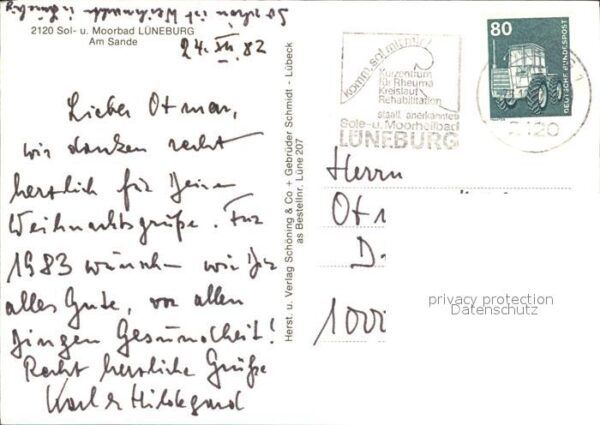 So schön ist Weihnachten in Lüneburg
2120 Sol- u. Moorbad LÜNEBURG
Am Sande
24. XII 82
Lieber Otmar,
wir danken recht
herzlich für Deine
Weihnachtsgrüße. Für
1983 wünschen wir Dir
alles Gute, vor allen
Dingen Gesundheit!
Recht herzliche Grüße
Karl & Hildegard
Herst. u. Verlag Schöning & Co + Gebrüder Schmidt - Lübeck
as Bestellnr. Lüne 207
komm, sol mit mir!
Kurzentrum
für Rheuma
Kreislauf
Rehabilitation
staatl. anerkanntes
Sole-u. Moorheilbad
LÜNEBURG
2120
80
DEUTSCHE BUNDESPOST
Herrn
Ot
D.
privacy protection
Datenschutz
100